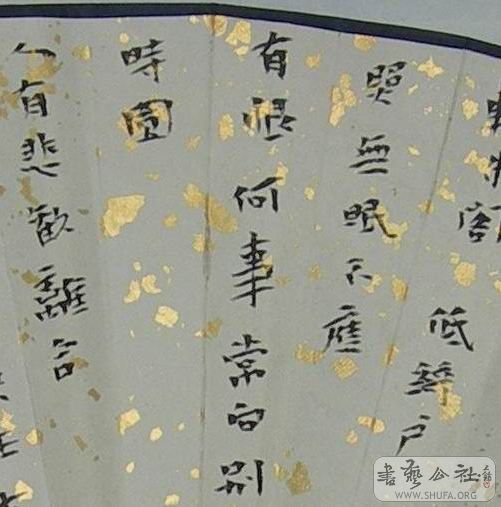 朱閣低綺戶
照無眠不應
有恨何事常向別
時圓
人有悲歡離合
書藝公社
WWW.SHUFA.ORG